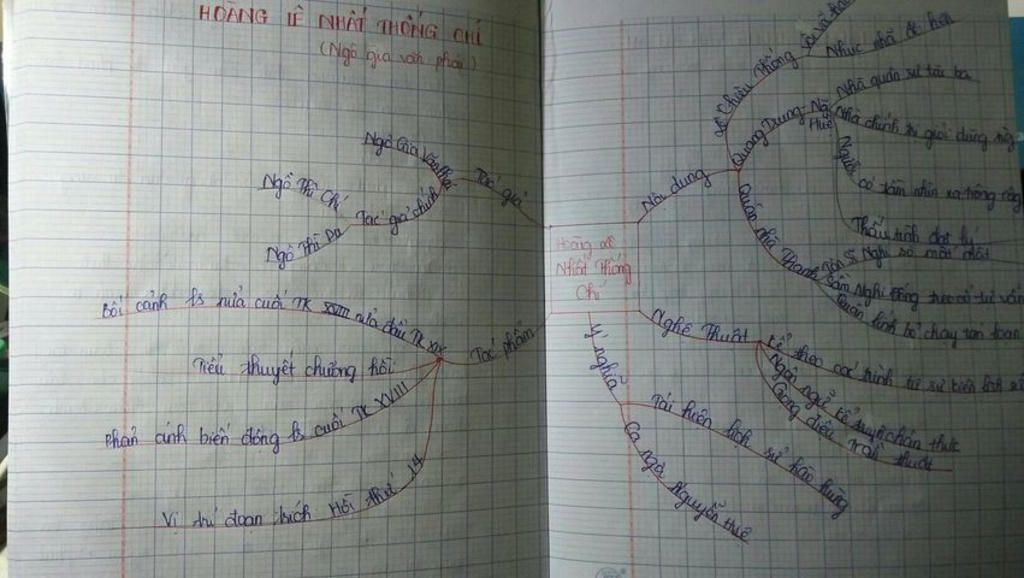 HOÀNG LÊ NHẤT THỐNG CHÍ
(Ngô gia văn phái)
Ngô Gia Văn Phái
Tác giả
Ngô Thì Chí
Tác giả chính
Ngô Thì Du
Bối cảnh ls nửa cuối TK XVIII nửa đầu TK XIX
Tác phẩm
Tiểu thuyết chương hồi
Phản ánh biến động ls cuối TK XVIII
Vị trí đoạn trích Hồi thứ 14
Hoàng Lê
Nhất Thống
Chí
Nội dung
Lê Chiêu Thống
Nhục nhã đê hèn
Quang Trung - Nguyễn Huệ
Nhà quân sự tài ba
Nhà chính trị giỏi
Người có tầm nhìn xa trông rộng
Quân nhà Thanh
Tôn Sĩ Nghị sợ mất mật
Sầm Nghi Đống treo cổ tự vẫn
Quân lính bỏ chạy tán loạn
Nghệ Thuật
Kể theo các trình tự sự kiện lịch sử
Ngôn ngữ kể tả chân thực
Giọng điệu trần thuật
Ý nghĩa
Tái hiện lịch sử hào hùng
Ca ngợi Nguyễn Huệ